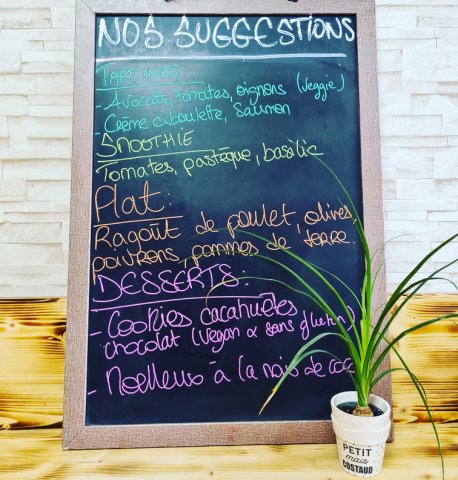 NOS SUGGESTIONS
TARTINES:
- Avocats, tomates, oignons (veggie)
- Crème ciboulette, saumon
SMOOTHIE
Tomates, pastèque, basilic
Plat:
Ragoût de poulet, olives,
poivrons, pommes de terre.
DESSERTS:
- Cookies cacahuètes
chocolat (vegan & sans gluten)
- Moelleux à la noix de coco
PETIT
mais
COSTAUD